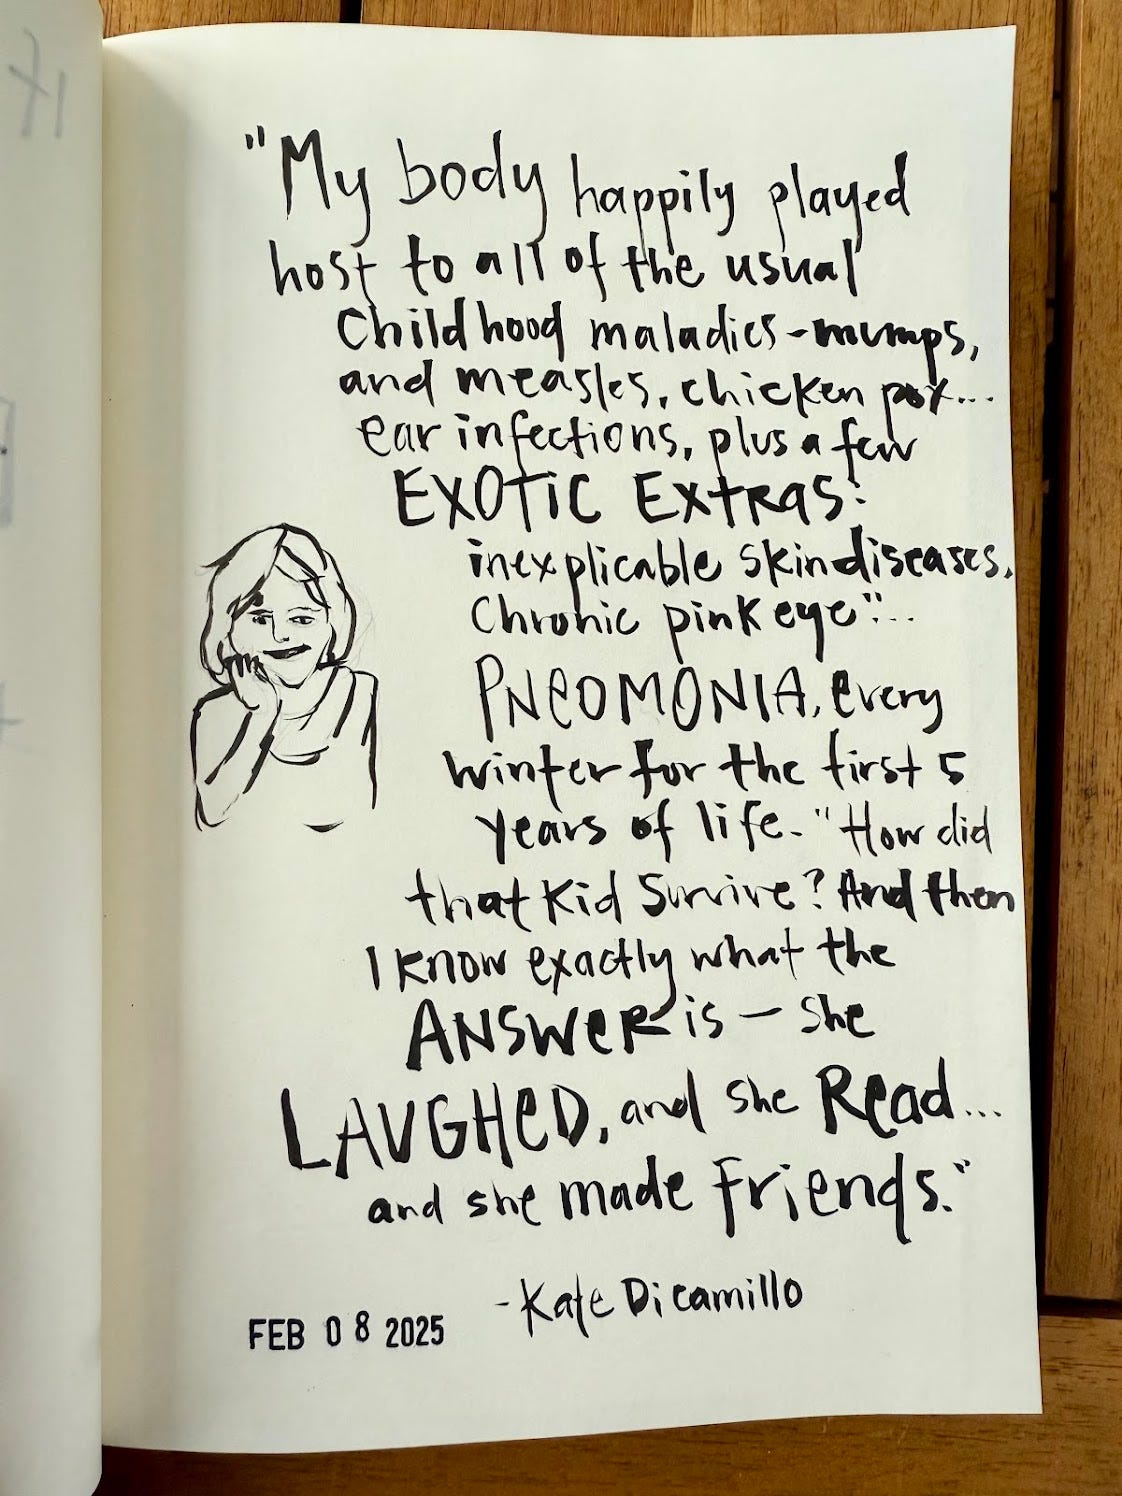 "My body happily played
host to all of the usual
Childhood maladies - mumps,
and measles, chicken pox...
ear infections, plus a few
EXOTIC EXtRAS:
inexplicable skin diseases,
Chronic pink eye"...
PNEOMONIA, every
winter for the first 5
years of life. "How did
that kid Survive? And then
I know exactly what the
ANSWeR is — she
LAUGHeD, and she Read...
and she made friends."
- Kate Dicamillo
FEB 08 2025